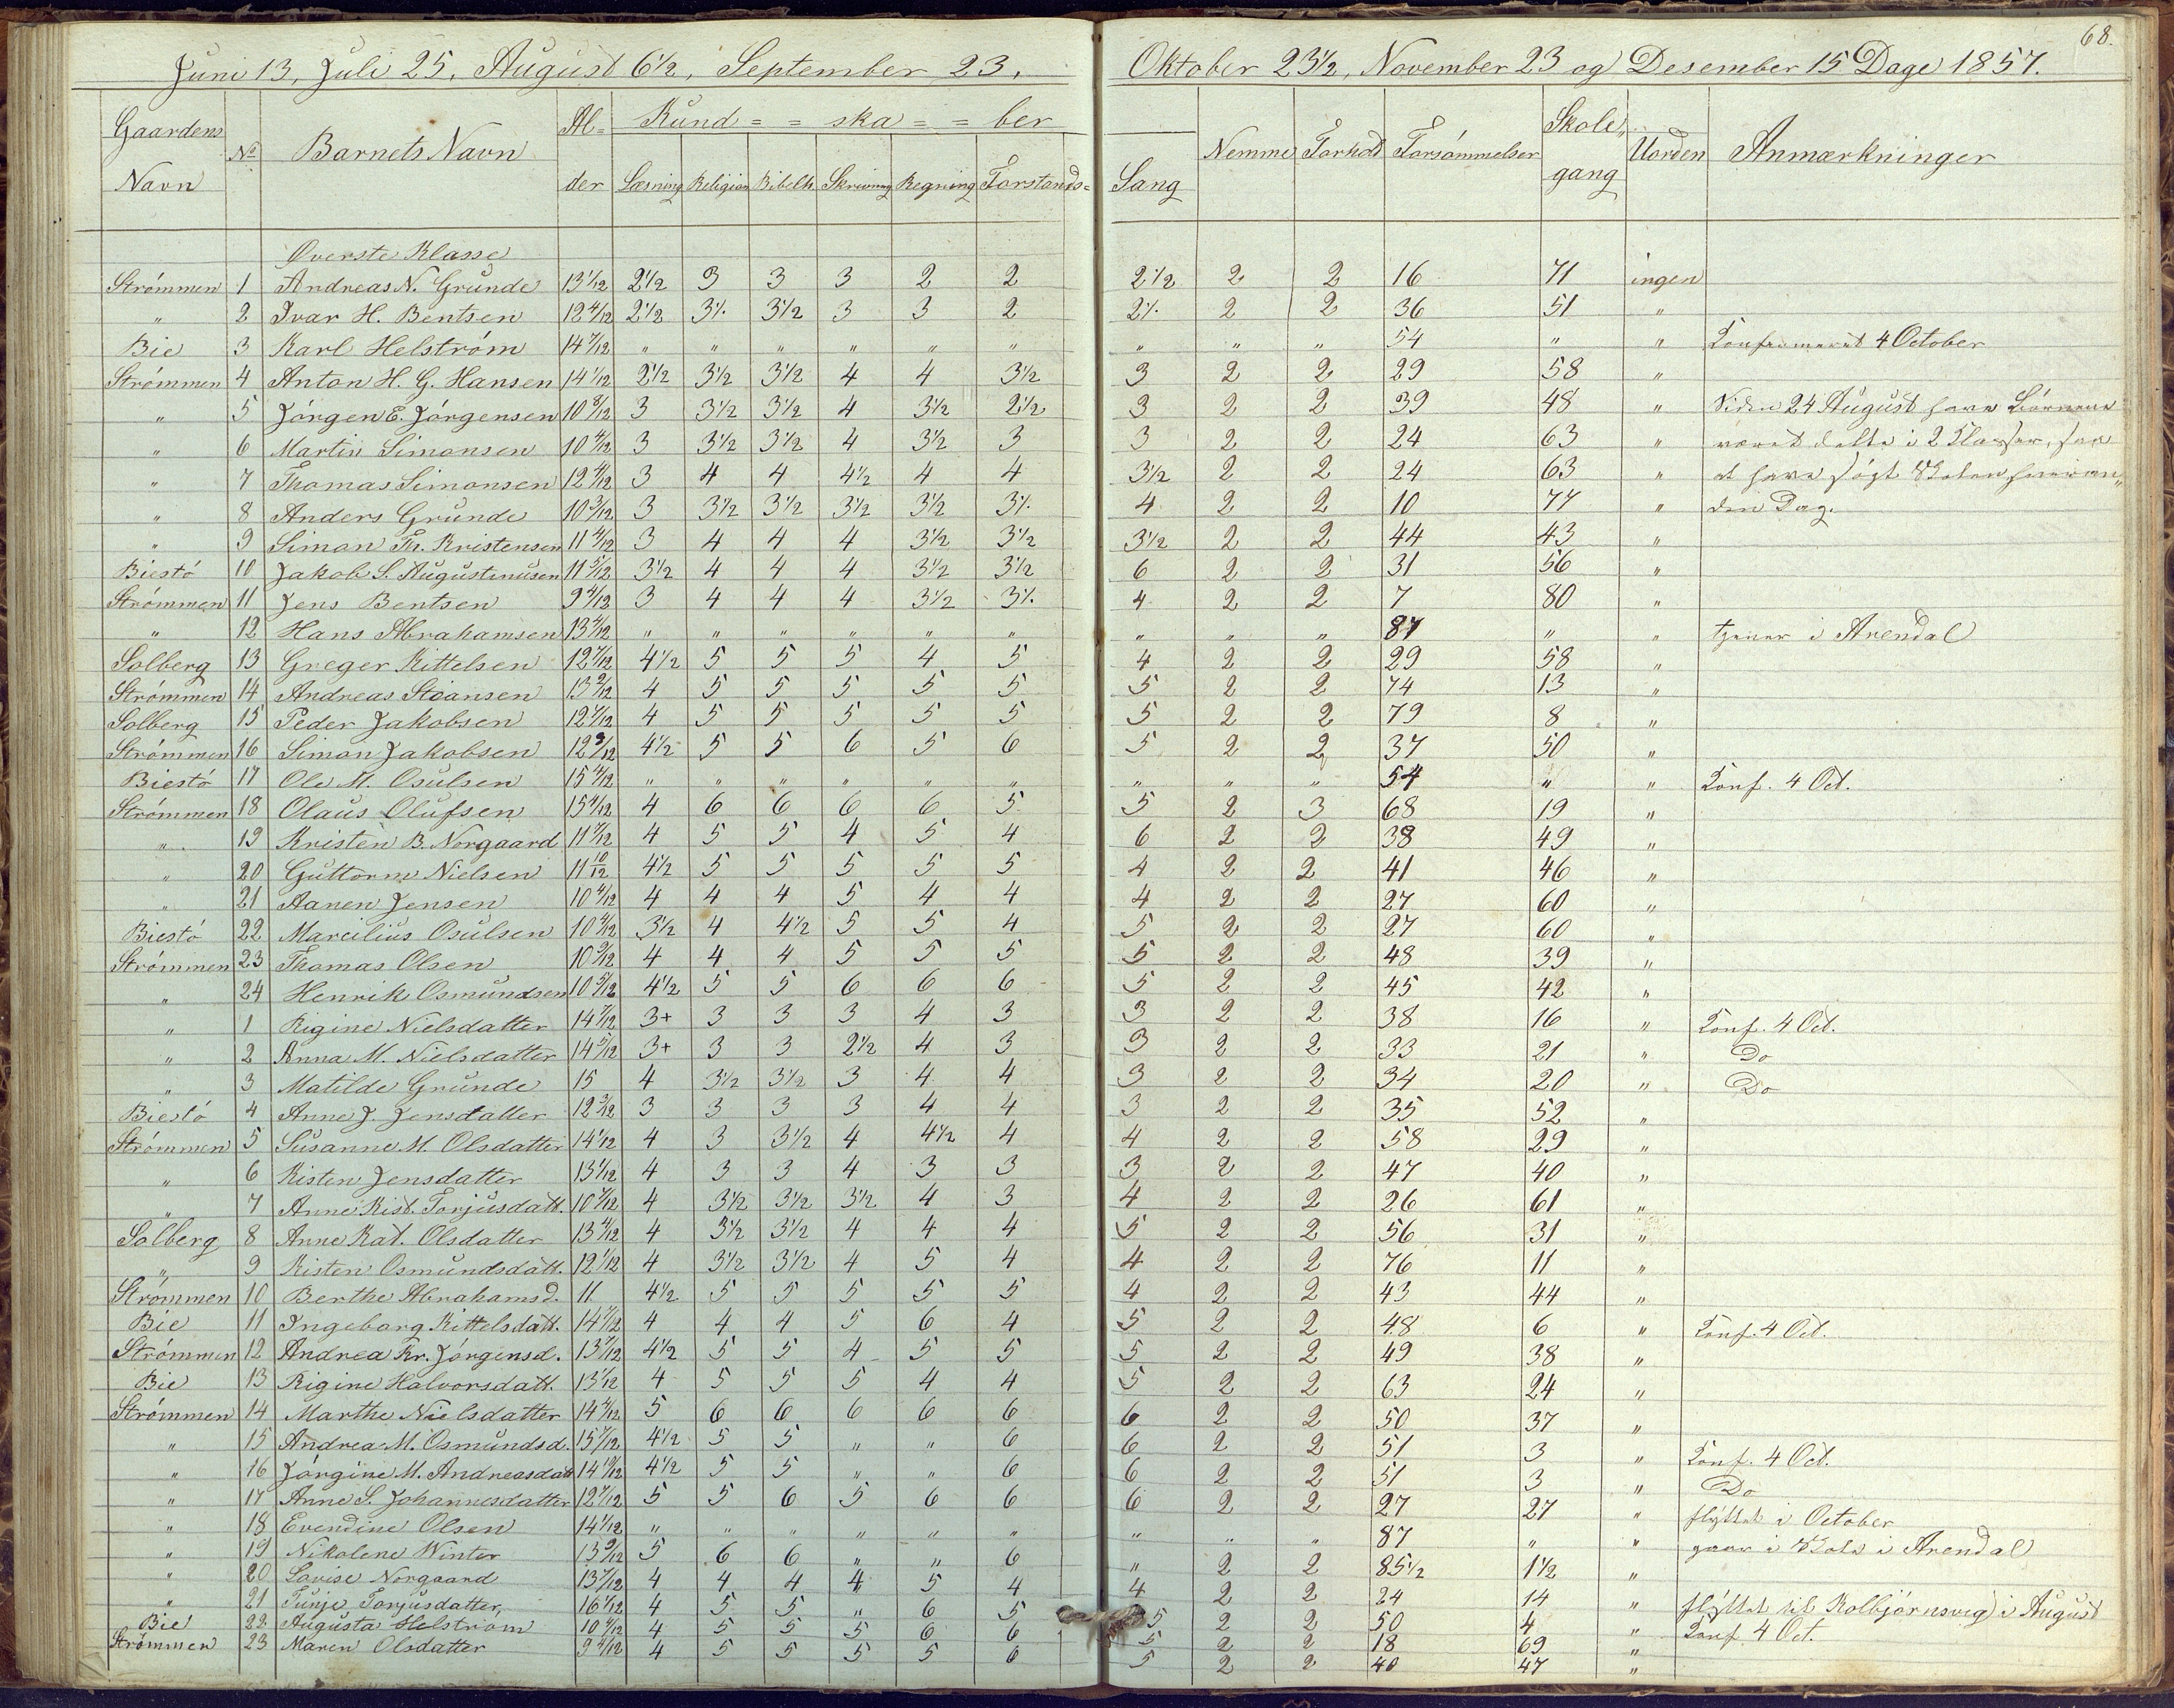 68.
Juni 13, Juli 25, August 6½, September 23, Oktober 23½, November 23 og Desember 15 Dage 1857.
Gaardens Navn | No | Barnets Navn | Al=der | Kund = = ska = = ber | Læsning | Religion | Bibelh. | Skrivning | Regning | Forstands= | Sang | Nemme | Forhold | Forsømmelser | Skolegang | Uorden | Anmærkninger
Øverste Klasse
Strømmen 1 Andreas N. Grunde 13 1/12 2½ 3 3 3 2 2 2½ 2 2 16 71 ingen
" 2 Ivar H. Bentsen 12 4/12 2½ 3½ 3½ 3 3 2 2½ 2 2 36 51 "
Bie 3 Karl Helstrøm 14 7/12 " " " " " " " " " 54 " " Konfirmeret 4 October
Strømmen 4 Anton H. G. Hansen 14 1/12 2½ 3½ 3½ 4 4 3½ 3 2 2 29 58 "
" 5 Jørgen E. Jørgensen 10 8/12 3 3½ 3½ 4 3½ 2½ 3 2 2 39 48 " Siden 24 August have Børnene
" 6 Martin Simonsen 10 4/12 3 3½ 3½ 4 3½ 3 3 2 2 24 63 " været delte i 2 Klasser, for
" 7 Thomas Simonsen 12 4/12 3 4 4 4½ 4 4 3½ 2 2 24 63 " at have søgt Skolen hver an"
" 8 Anders Grunde 10 3/12 3 3½ 3½ 3½ 3½ 3½ 4 2 2 10 77 " den Dag.
" 9 Simon Th. Kristensen 11 4/12 3 4 4 4 3½ 3½ 3½ 2 2 44 43 "
Biestø 10 Jakob S. Augustinusen 11 5/12 3½ 4 4 4 3½ 3½ 6 2 2 31 56 "
Strømmen 11 Jens Bentsen 9 4/12 3 4 4 4 3½ 3½ 4 2 2 7 80 "
" 12 Hans Abrahamsen 13 4/12 " " " " " " " " " 87 " " tjener i Arendal
Solberg 13 Greger Kittelsen 12 7/12 4½ 5 5 5 4 5 4 2 2 29 58 "
Strømmen 14 Andreas Stiansen 13 2/12 4 5 5 5 5 5 5 2 2 74 13 "
Solberg 15 Peder Jakobsen 12 4/12 4 5 5 5 5 5 5 2 2 79 8 "
Strømmen 16 Simon Jakobsen 12 9/12 4½ 5 5 6 5 6 5 2 2 37 50 "
Biestø 17 Ole M. Osulsen 15 4/12 " " " " " " " " " 54 " " Konf. 4 Oct.
Strømmen 18 Olaus Olufsen 15 4/12 4 6 6 6 6 5 5 2 3 68 19 "
" 19 Kristen B. Norgaard 11 7/12 4 5 5 4 5 4 6 2 2 38 49 "
" 20 Guttorm Nielsen 11 10/12 4½ 5 5 5 5 5 4 2 2 41 46 "
" 21 Aanen Jensen 10 4/12 4 4 4 5 4 4 4 2 2 27 60 "
Biestø 22 Marcilius Osulsen 10 4/12 3½ 4 4½ 5 5 4 5 2 2 27 60 "
Strømmen 23 Thomas Olsen 10 5/12 4 4 4 5 5 5 5 2 2 48 39 "
" 24 Henrik Osmundsen 10 5/12 4½ 5 5 6 6 6 5 2 2 45 42 "
" 1 Rigine Nielsdatter 14 7/12 3+ 3 3 3 4 3 3 2 2 38 16 " Konf. 4 Oct.
" 2 Anna M. Nielsdatter 14 5/12 3+ 3 3 2½ 4 3 3 2 2 33 21 " Do
" 3 Matilde Grunde 15 4 3½ 3½ 3 4 4 3 2 2 34 20 " Do
Biestø 4 Anne J. Jensdatter 12 3/12 3 3 3 3 4 4 3 2 2 35 52 "
Strømmen 5 Susanne M. Olsdatter 14 1/12 4 3 3½ 4 4½ 4 4 2 2 58 29 "
" 6 Kisten Jensdatter 13 1/12 4 3 3 4 3 3 3 2 2 47 40 "
" 7 Anne Kist. Torjusdatt. 10 7/12 4 3½ 3½ 3½ 4 3 4 2 2 26 61 "
Solberg 8 Anne Kat. Olsdatter 13 4/12 4 3½ 3½ 4 4 4 5 2 2 56 31 "
" 9 Kisten Osmundsdatt. 12 1/12 4 3½ 3½ 4 5 4 4 2 2 76 11 "
Strømmen 10 Berthe Abrahamsd. 11 4½ 5 5 5 5 5 4 2 2 43 44 "
Bie 11 Ingeborg Kittelsdatt. 14 7/12 4 4 4 5 6 4 5 2 2 48 6 " Konf. 4 Oct.
Strømmen 12 Andrea Kr. Jørgensd. 13 7/12 4½ 5 5 4 5 5 5 2 2 49 38 "
Bie 13 Rigine Halvorsdatt. 13 1/12 4 5 5 5 4 4 5 2 2 63 24 "
Strømmen 14 Marthe Nielsdatter 14 4/12 5 6 6 6 6 6 6 2 2 50 37 "
" 15 Andrea M. Osmundsd. 15 7/12 4½ 5 5 " " 6 6 2 2 51 3 " Konf. 4 Oct.
" 16 Jørgine M. Andreasdatt 14 10/12 4½ 5 5 " " 6 6 2 2 51 3 " Do
" 17 Anne S. Johannesdatter 12 7/12 5 5 6 5 6 6 6 2 2 27 27 " flyttet i October
" 18 Evendine Olsen 14 1/12 " " " " " " " " " 87 " " gaar i Skole i Arendal
" 19 Nikolene Winter 13 9/12 5 6 6 " " 6 " 2 2 85½ 1½ "
" 20 Lovise Norgaard 13 7/12 4 4 4 4 5 4 4 2 2 24 14 " flyttet til Kolbjørnsvig i August
" 21 Tunje Torjusdatter, 16 1/12 4 5 5 " 6 5 5 2 2 50 4 " Konf. 4 Oct.
Bie 22 Augusta Helstrøm 10 4/12 4 5 5 5 6 6 5 2 2 18 69 "
Strømmen 23 Maren Olsdatter 9 4/12 4 5 5 5 5 6 5 2 2 40 47 "